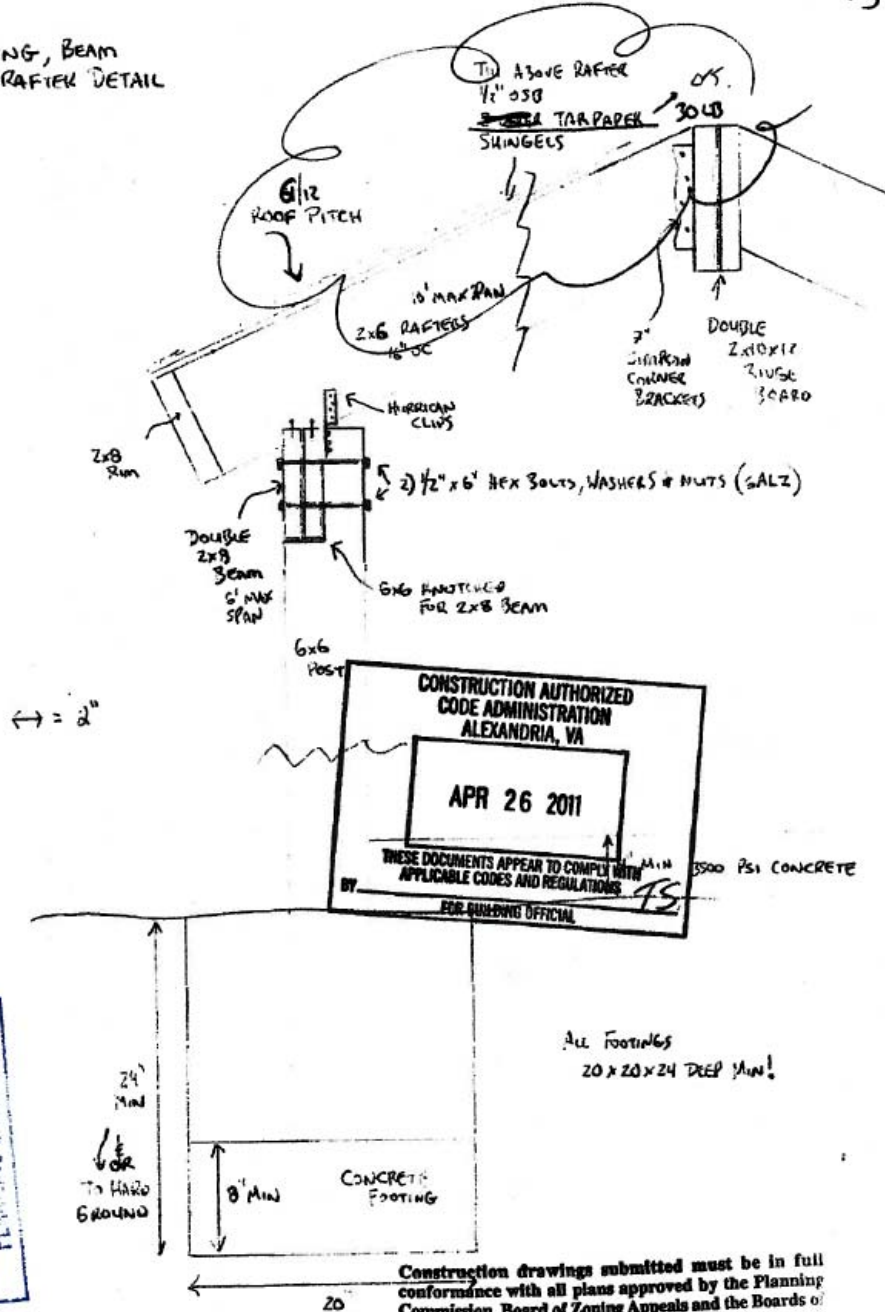 NG, BEAM
RAFTER DETAIL
ABOVE RAFTER
1/2" OSB
TARPAPER
30LB
SHINGELS
/12
ROOF PITCH
10' MAX SPAN
2x6 RAFTERS
16" OC
7"
SIMPSON
CORNER
BRACKETS
DOUBLE
2x10x12
RIDGE
BOARD
HURRICAN
CLIPS
2x8
RIM
2) 1/2" x 6" HEX BOLTS, WASHERS & NUTS (GALZ)
DOUBLE
2x8
BEAM
6' MAX
SPAN
6x6 KNOTCHED
FOR 2x8 BEAM
6x6
POST
↔ = 2"
CONSTRUCTION AUTHORIZED
CODE ADMINISTRATION
ALEXANDRIA, VA
APR 26 2011
THESE DOCUMENTS APPEAR TO COMPLY WITH
APPLICABLE CODES AND REGULATIONS
BY TS
FOR BUILDING OFFICIAL
MIN 3500 PSI CONCRETE
24"
MIN
OR
TO HARD
GROUND
8" MIN
CONCRETE
FOOTING
ALL FOOTINGS
20 x 20 x 24 DEEP MIN!
20
Construction drawings submitted must be in full
conformance with all plans approved by the Planning
Commission, Board of Zoning Appeals and the Boards of